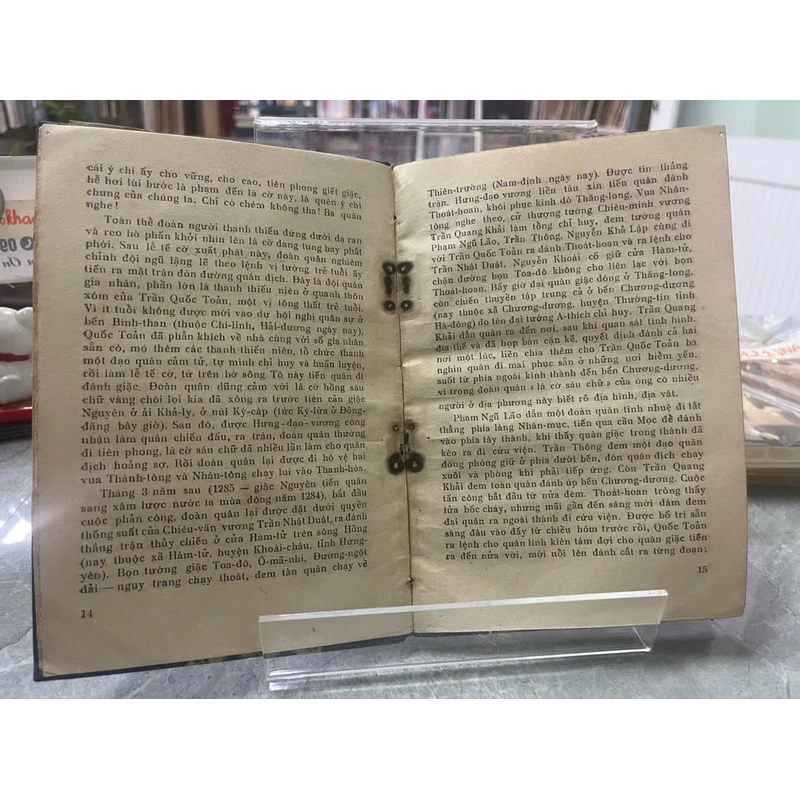 cái ý chí ấy cho vững, cho cao, tiên phong giết giặc,
hễ hơi lùi bước là phạm đến lá cờ này, là quên ý chí
chung của chúng ta. Chỉ có chém không tha! Ba quân
nghe!
Toàn thể đoàn người thanh thiếu đứng dưới dạ ran
và reo hò phấn khởi nhìn lên lá cờ đang tung bay phất
phới. Sau lễ tế cờ xuất phát này, đoàn quân nghiêm
chỉnh đội ngũ lặng lẽ theo lệnh vị tướng trẻ tuổi ấy
tiến ra mặt trận đón đường quân địch. Đây là đội quân
gia nhân, phần lớn là thanh thiếu niên ở quanh thôn
xóm của Trần Quốc Toản, một vị tông thất trẻ tuổi.
Vì ít tuổi không được mời vào dự hội nghị quân sự ở
bến Bình-than (thuộc Chí-linh, Hải-dương ngày nay),
Quốc Toản đã phẫn khích về nhà cùng với số gia nhân
sẵn có, mộ thêm các thanh thiếu niên, tổ chức thành
một đạo quân cảm tử, tự mình chỉ huy và huấn luyện,
rồi làm lễ tế cờ, từ trên bờ sông Tô này tiến quân đi
đánh giặc. Đoàn quân dũng cảm với lá cờ hồng sáu
chữ vàng chói lọi kia đã xông ra trước tiên cản giặc
Nguyên ở ải Khả-ly, ở núi Kỳ-cấp (tức Kỳ-lừa ở Đồng-
đăng bây giờ). Sau đó, được Hưng-đạo-vương công
nhận làm quân chiến đấu, ra trận, đoàn quân thường
đi tiên phong, lá cờ sáu chữ đã nhiều lần làm cho quân
địch hoảng sợ. Rồi đoàn quân lại được đi hộ vệ hai
vua Thánh-tông và Nhân-tông chạy lui vào Thanh-hóa.
Tháng 3 năm sau (1285 — giặc Nguyên tiến quân
sang xâm lược nước ta mùa đông năm 1284), bắt đầu
cuộc phản công, đoàn quân lại được đặt dưới quyền
thống suất của Chiêu-văn vương Trần Nhật Duật, ra đánh
thắng trận thủy chiến ở cửa Hàm-tử trên sông Hồng
(nay thuộc xã Hàm-tử, huyện Khoái-châu, tỉnh Hưng-
yên). Bọn tướng giặc Toa-đô, Ô-mã-nhi, Đường-ngột
đải — ngụy trang chạy thoát, đem tàn quân chạy về
14
Thiên-trường (Nam-định ngày nay). Được tin thắng
trận, Hưng-đạo-vương liền tâu xin tiến quân đánh
Thoát-hoan, khôi phục kinh đô Thăng-long. Vua Nhân-
tông nghe theo, cử thượng tướng Chiêu-minh vương
Trần Quang Khải làm tổng chỉ huy, đem tướng quân
Phạm Ngũ Lão, Trần Thông, Nguyễn Khả Lập cùng đi
với Trần Quốc Toản ra đánh Thoát-hoan và ra lệnh cho
Trần Nhật Duật, Nguyễn Khoái cố giữ cửa Hàm-tử,
chặn đường bọn Toa-đô không cho liên lạc với bọn
Thoát-hoan. Bấy giờ đại quân giặc đóng ở Thăng-long,
còn chiến thuyền tập trung cả ở bến Chương-dương
(nay thuộc xã Chương-dương, huyện Thường-tín tỉnh
Hà-đông) do tên đại tướng A-thích chỉ huy. Trần Quang
Khải dẫn quân ra đến nơi, sau khi quan sát tình hình
địch và đã họp bàn cặn kẽ, quyết định đánh cả hai
nơi một lúc, liền chia thêm cho Trần Quốc Toản ba
nghìn quân đi mai phục sẵn ở những nơi hiểm yếu,
suốt từ phía ngoài kinh thành đến bến Chương-dương,
vì trong đoàn quân « lá cờ sáu chữ » của ông có nhiều
người ở địa phương này biết rõ địa hình, địa vật.
Phạm Ngũ Lão dẫn một đoàn quân tinh nhuệ đi tắt
thẳng phía làng Nhân-mục, tiến qua cầu Mọc để đánh
vào phía tây thành, khi thấy quân giặc trong thành đã
kéo ra đi cứu viện. Trần Thông đem một đạo quân
đóng phòng giữ ở phía dưới bến, đón quân giặc chạy
xuôi và phòng khi phải tiếp ứng. Còn Trần Quang
Khải đem toàn quân đánh úp bến Chương-dương. Cuộc
tấn công bắt đầu từ nửa đêm. Thoát-hoan trông thấy
lửa bốc cháy, nhưng mãi gần đến sáng mới dám đem
đại quân ra ngoài thành đi cứu viện. Được bố trí sẵn
sàng đâu vào đấy từ chiều hôm trước rồi, Quốc Toản
ra lệnh cho quân lính kiên tâm đợi cho quân giặc tiến
ra đến nửa vời, mới nổi lên đánh cắt ra từng đoạn;
15